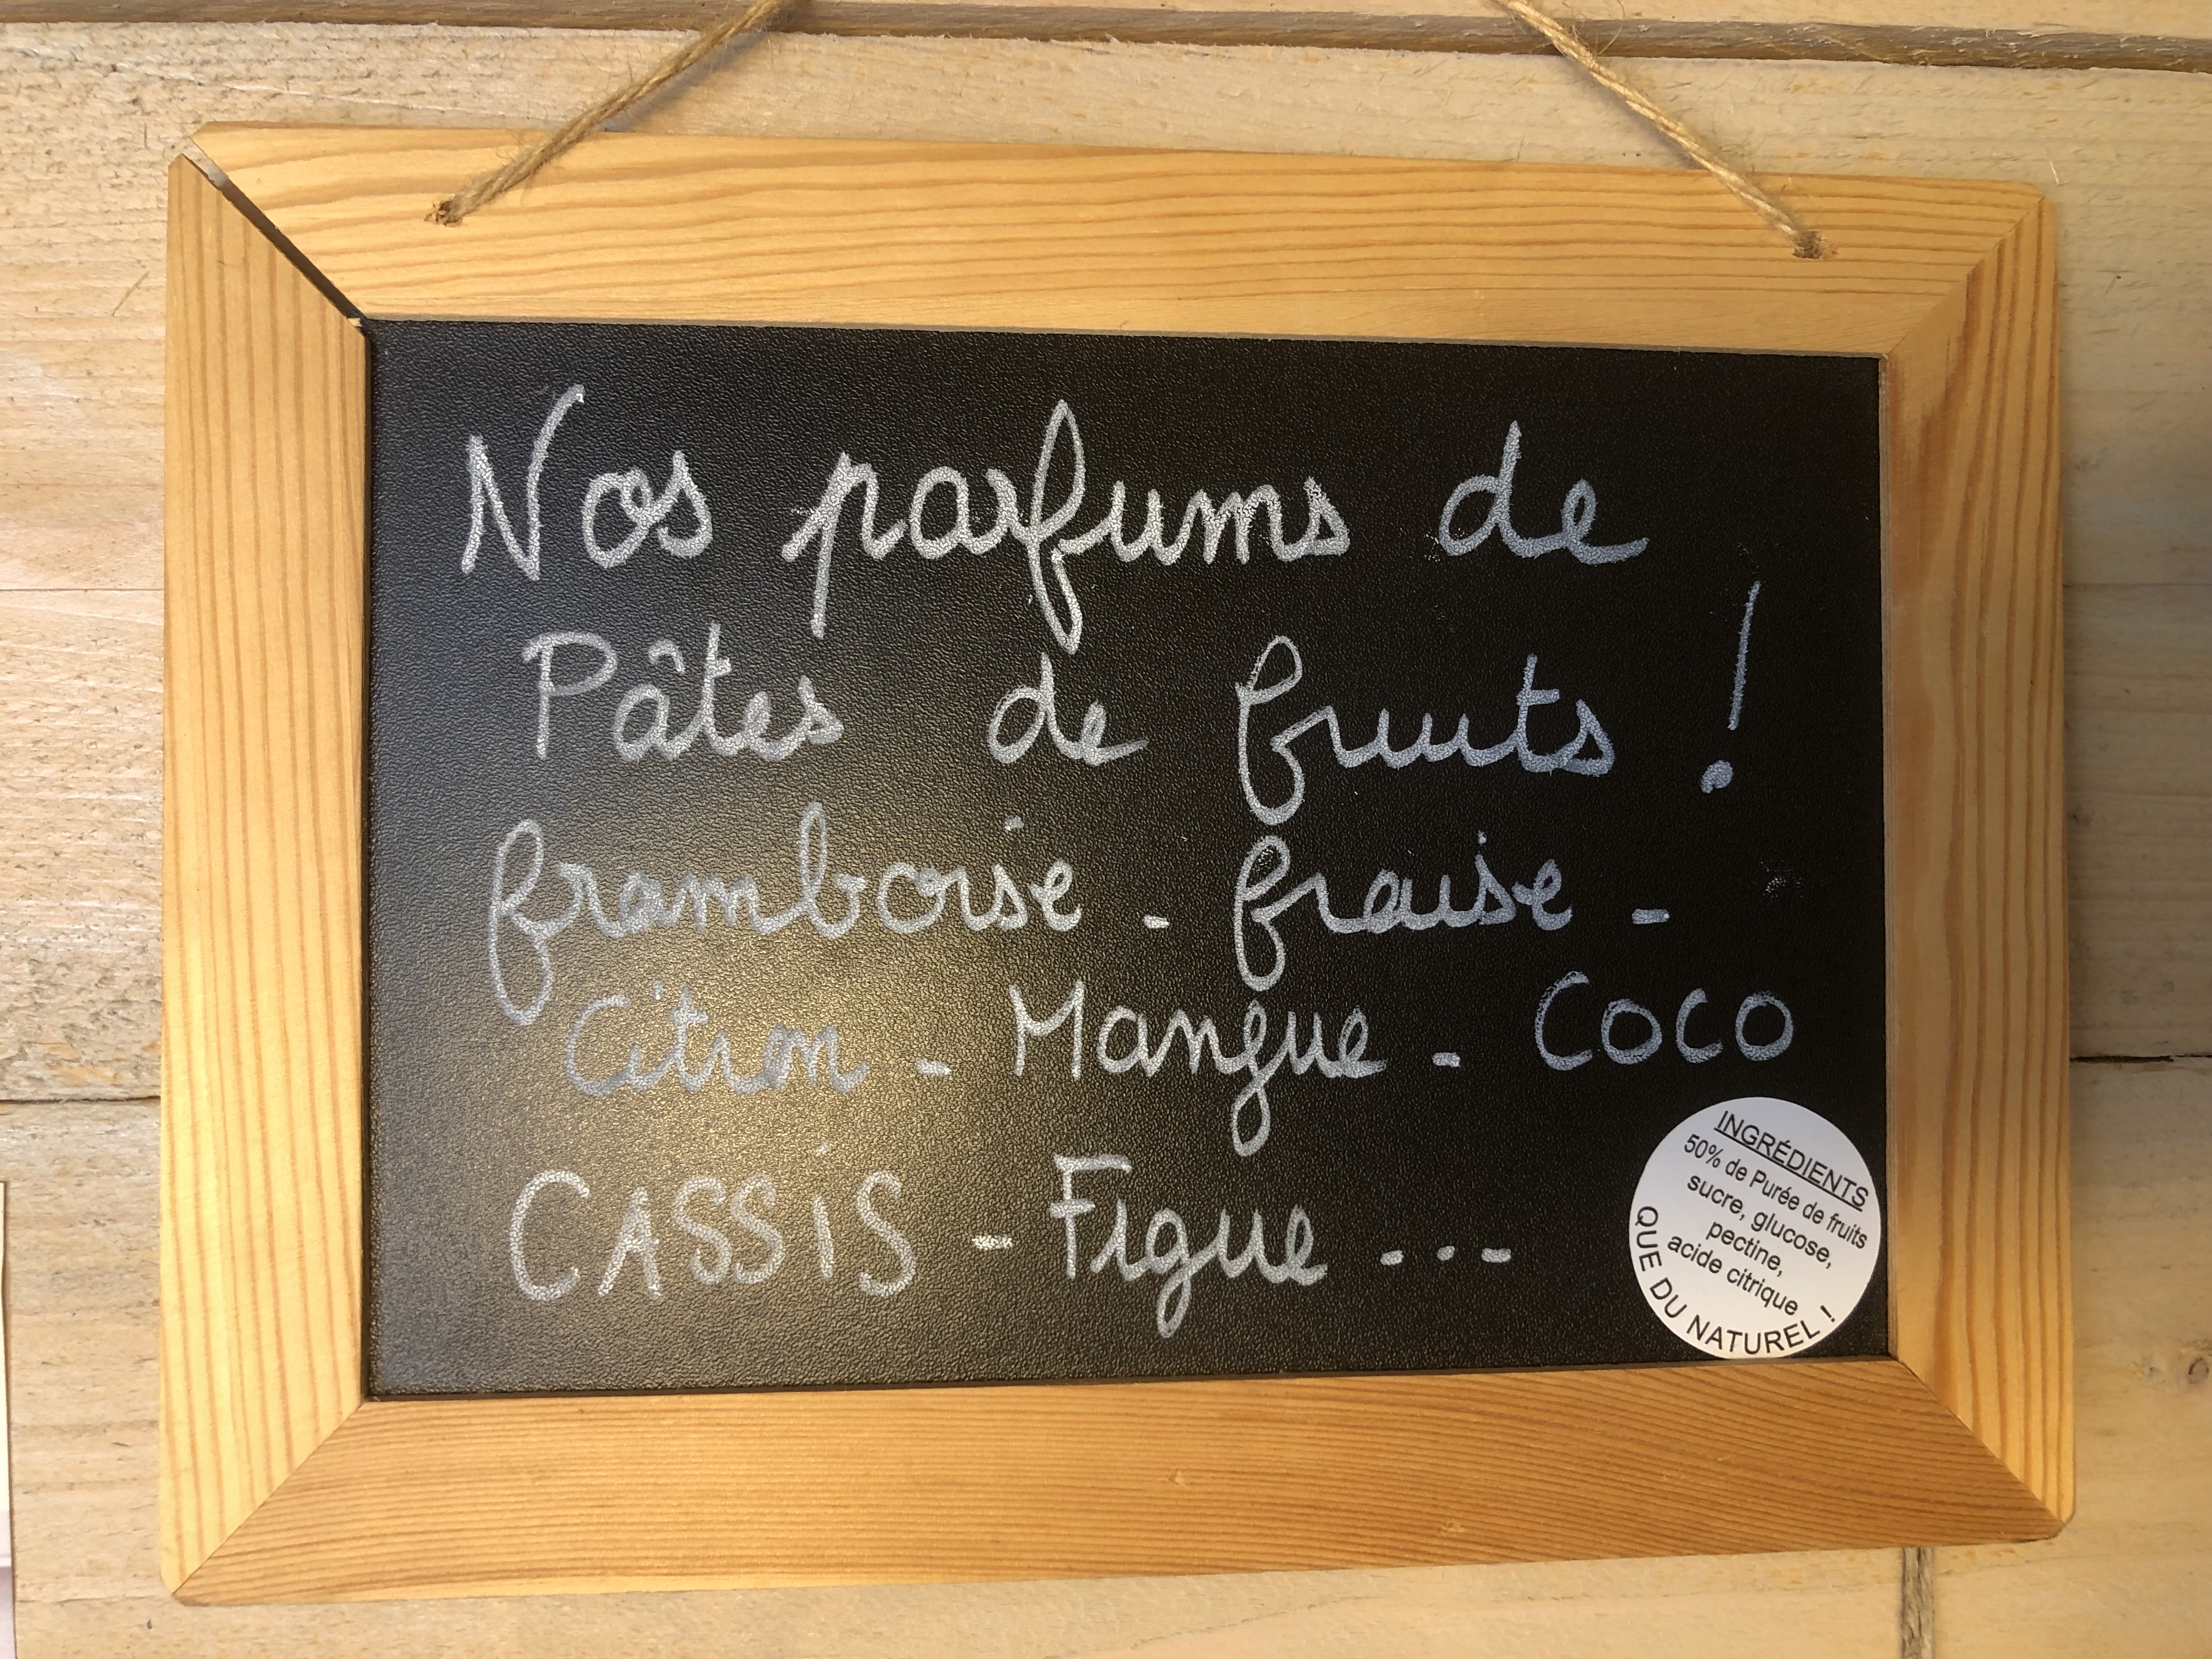 Nos parfums de
Pâtes de fruits !
framboise - fraise -
Citron - Mangue - COCO
CASSiS - Figue - . -
INGRÉDIENTS
50% de Purée de fruits
sucre, glucose,
pectine,
acide citrique
QUE DU NATUREL !